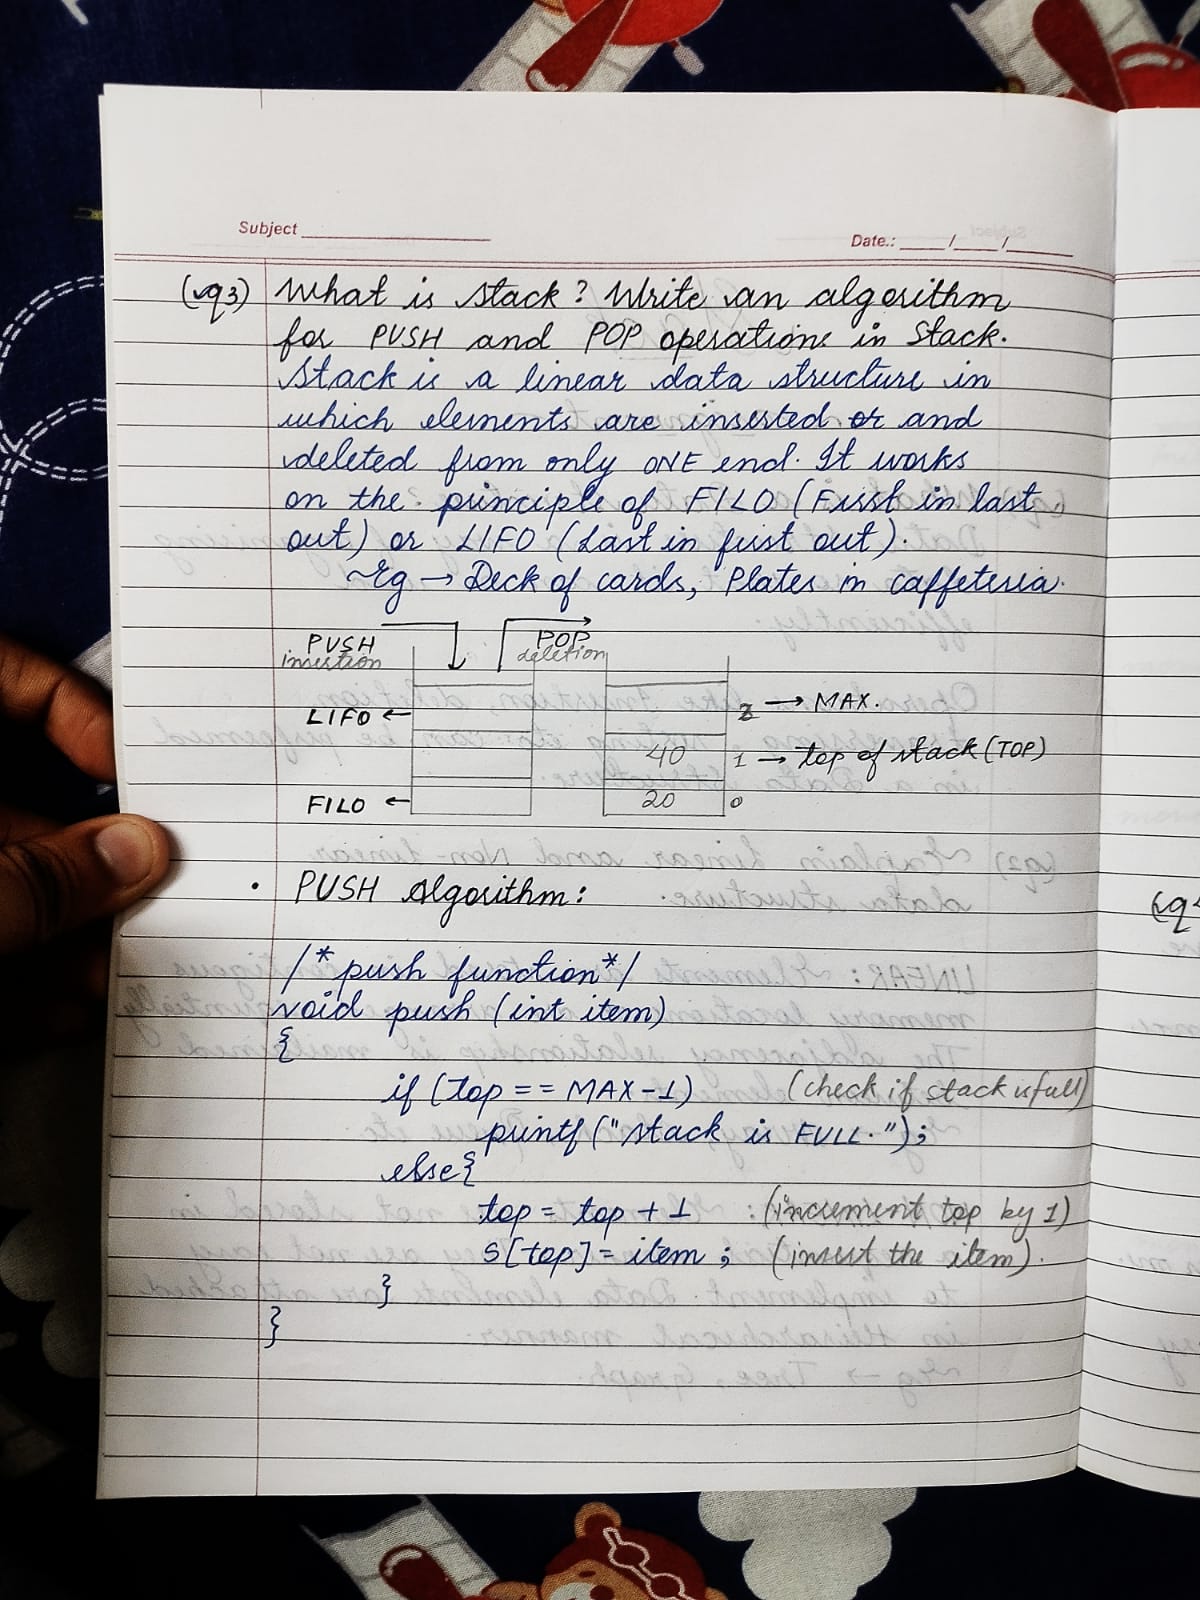 Subject
Date.: / /
(q3) What is stack? Write an algorithm
for PUSH and POP operations in Stack.
Stack is a linear data structure in
which elements are inserted or and
deleted from only ONE end. It works
on the principle of FILO (First in last
out) or LIFO (Last in first out).
Eg → Deck of cards, Plates in caffeteria.
PUSH
insertion
POP
deletion
LIFO ←
FILO ←
2 → MAX.
40 1 → top of stack (TOP)
20 0
• PUSH Algorithm:
/* push function */
void push (int item)
{
if (top == MAX-1) (check if stack is full)
printf ("stack is FULL.");
else{
top = top + 1 : (increment top by 1)
S[top] = item ; (insert the item).
}
}